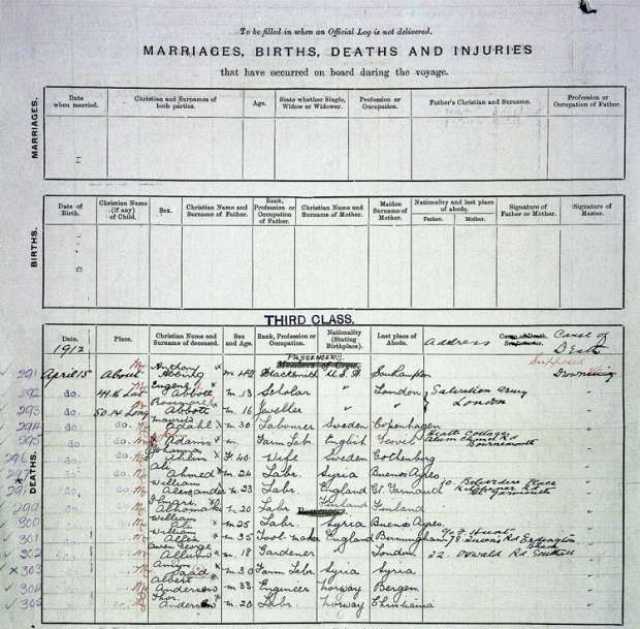 To be filled in when an Official Log is not delivered.
MARRIAGES, BIRTHS, DEATHS AND INJURIES
that have occurred on board during the voyage.
MARRIAGES.
Date when married. Christian and Surnames of both parties. Age. State whether Single, Widow or Widower. Profession or Occupation. Father's Christian and Surname. Profession or Occupation of Father.
BIRTHS.
Date of Birth. Christian Name (if any) of Child. Sex. Christian Name and Surname of Father. Rank, Profession or Occupation of Father. Christian Name and Surname of Mother. Maiden Surname of Mother. Nationality and last place of abode. Father. Mother. Signature of Father or Mother. Signature of Master.
THIRD CLASS.
DEATHS.
Date. 1912 Place. Christian Name and Surname of deceased. Sex and Age. Rank, Profession or Occupation. Nationality (Stating Birthplace). Last place of Abode. Address Cause of Death
PASSENGERS Members of Crew. Supposed
291 April 15 About Anthony Abbing m 42 Blacksmith U.S.A Southampton Drowning
292 do. 41.16 Lat Eugene Abbott m 13 Scholar " London Salvation Army
293 do. 50.14 Long Abbott m 16 Jeweller " London
294 do. Adahl m 30 Labourer Sweden Copenhagen
295 do. Adams m Farm Lab English Bournemouth
296 do. Johanna Ahlin F 40 Wife Sweden Gothenburg
do. Ali Ahmed m 24 Labr. Syria Buenos Ayres
do. William Alexander m 23 Labr. England Gt. Yarmouth Yarmouth
do. Ilmari m 20 Labr. Finland
300 do. William Ali m 25 Labr. Syria Buenos Ayres
301 do. William Allen m 35 Tool maker England Birmingham Erdington
302 do. Owen George Allum m 18 Gardener " London 22. Oswald Rd Southall
303 do. Amin Saad m 30 Farm Labr Syria Syria
304 do. Albert Andersen m 33 Engineer Norway Bergen
305 do. Thor Andersen m 20 Labr. Norway Christiania